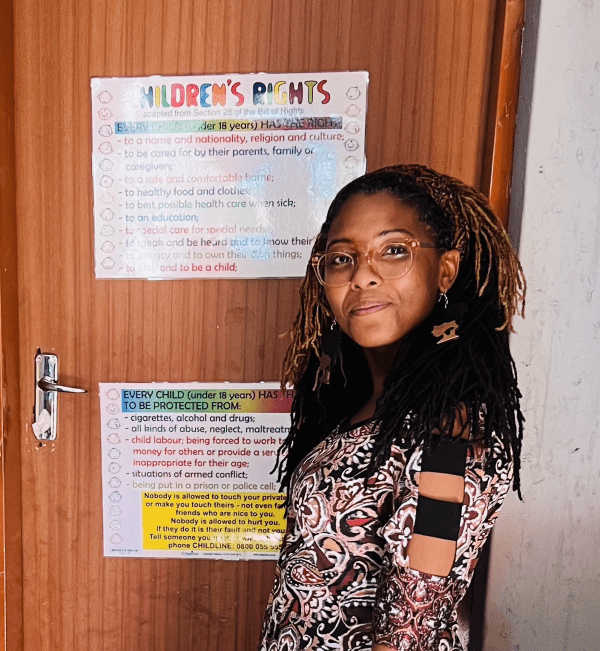 CHILDREN'S RIGHTS
adapted from Section 28 of the Bill of Rights
EVERY CHILD (under 18 years) HAS THE RIGHT:
- to a name and nationality, religion and culture;
- to be cared for by their parents, family or
caregivers;
- to a safe and comfortable home;
- to healthy food and clothes;
- to best possible health care when sick;
- to an education;
- to special care for special needs;
- to speak and be heard and to know their
- to privacy and to own their own things;
- to play and to be a child;
EVERY CHILD (under 18 years) HAS
TO BE PROTECTED FROM:
- cigarettes, alcohol and drugs;
- all kinds of abuse, neglect, maltreatm
- child labour; being forced to work to
money for others or provide a serv
inappropriate for their age;
- situations of armed conflict;
- being put in a prison or police cell;
Nobody is allowed to touch your private
or make you touch theirs - not even fam
friends who are nice to you.
Nobody is allowed to hurt you.
If they do it is their fault and not you
Tell someone you
phone CHILDLINE: 0800 055 55